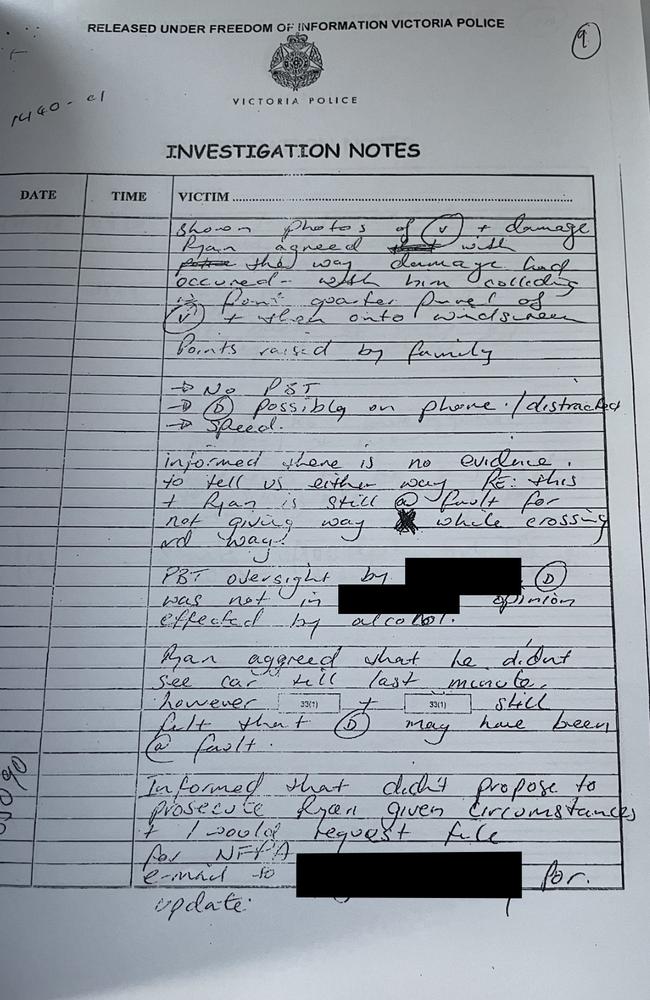 RELEASED UNDER FREEDOM OF INFORMATION VICTORIA POLICE
9
VICTORIA POLICE
INVESTIGATION NOTES
DATE TIME VICTIM
shown photos of (V) + damage
Ryan agreed with
the way damage had
occured - with him colliding
front quarter panel of
(V) + then onto windscreen
Points raised by family
→ No PBT
→ (D) possibly on phone./distracted
→ Speed.
informed there is no evidence.
to tell us either way RE: this
+ Ryan is still @ fault for
not giving way while crossing
rd way!
PBT oversight by (D)
was not in opinion
effected by alcohol.
Ryan aggreed that he didnt
see car till last minute.
however 33(1) + 33(1) still
felt that (D) may have been
@ fault.
Informed that didn't propose to
prosecute Ryan given circumstances
+ I would request file
for NFPA
e-mail to for.
update.